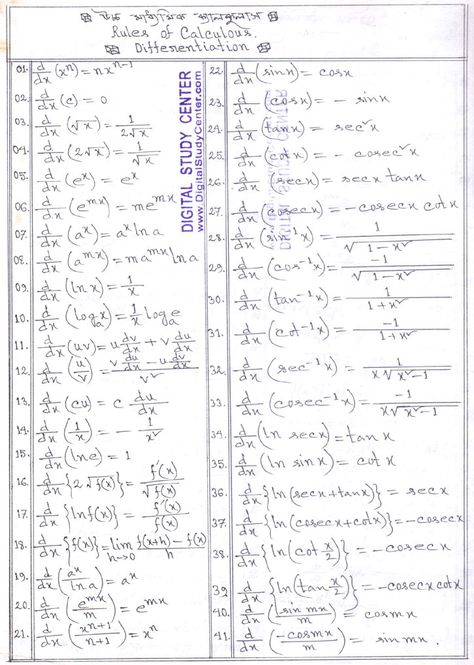 উচ্চ মাধ্যমিক ক্যালকুলাস
Rules of Calculous.
Differentiation
01. d/dx (xⁿ) = nxⁿ⁻¹
02. d/dx (c) = 0
03. d/dx (√x) = 1/(2√x)
04. d/dx (2√x) = 1/√x
05. d/dx (eˣ) = eˣ
06. d/dx (eᵐˣ) = meᵐˣ
07. d/dx (aˣ) = aˣ ln a
08. d/dx (aᵐˣ) = m aᵐˣ ln a
09. d/dx (ln x) = 1/x
10. d/dx (logₐx) = 1/x logₐe
11. d/dx (uv) = u dv/dx + v du/dx
12. d/dx (u/v) = (v du/dx - u dv/dx)/v²
13. d/dx (cu) = c du/dx
14. d/dx (1/x) = - 1/x²
15. d/dx (ln e) = 1
16. d/dx {2√f(x)} = f'(x)/√f(x)
17. d/dx {ln f(x)} = f'(x)/f(x)
18. d/dx {f(x)} = lim h→0 (f(x+h) - f(x))/h
19. d/dx (aˣ/ln a) = aˣ
20. d/dx (eᵐˣ/m) = eᵐˣ
21. d/dx (xⁿ⁺¹/(n+1)) = xⁿ
DIGITAL STUDY CENTER
www.DigitalStudyCenter.com
22. d/dx (sin x) = cos x
23. d/dx (cos x) = - sin x
24. d/dx (tan x) = sec²x
25. d/dx (cot x) = - cosec²x
26. d/dx (sec x) = sec x tan x
27. d/dx (cosec x) = - cosec x cot x
28. d/dx (sin⁻¹x) = 1/√(1-x²)
29. d/dx (cos⁻¹x) = -1/√(1-x²)
30. d/dx (tan⁻¹x) = 1/(1+x²)
31. d/dx (cot⁻¹x) = -1/(1+x²)
32. d/dx (sec⁻¹x) = 1/(x√(x²-1))
33. d/dx (cosec⁻¹x) = -1/(x√(x²-1))
34. d/dx (ln sec x) = tan x
35. d/dx (ln sin x) = cot x
36. d/dx {ln(sec x + tan x)} = sec x
37. d/dx {ln(cosec x + cot x)} = - cosec x
38. d/dx {ln(cot x/2)} = - cosec x
39. d/dx {ln(tan x/2)} = - cosec x cot x
40. d/dx (sin mx/m) = cos mx
41. d/dx (-cos mx/m) = sin mx.